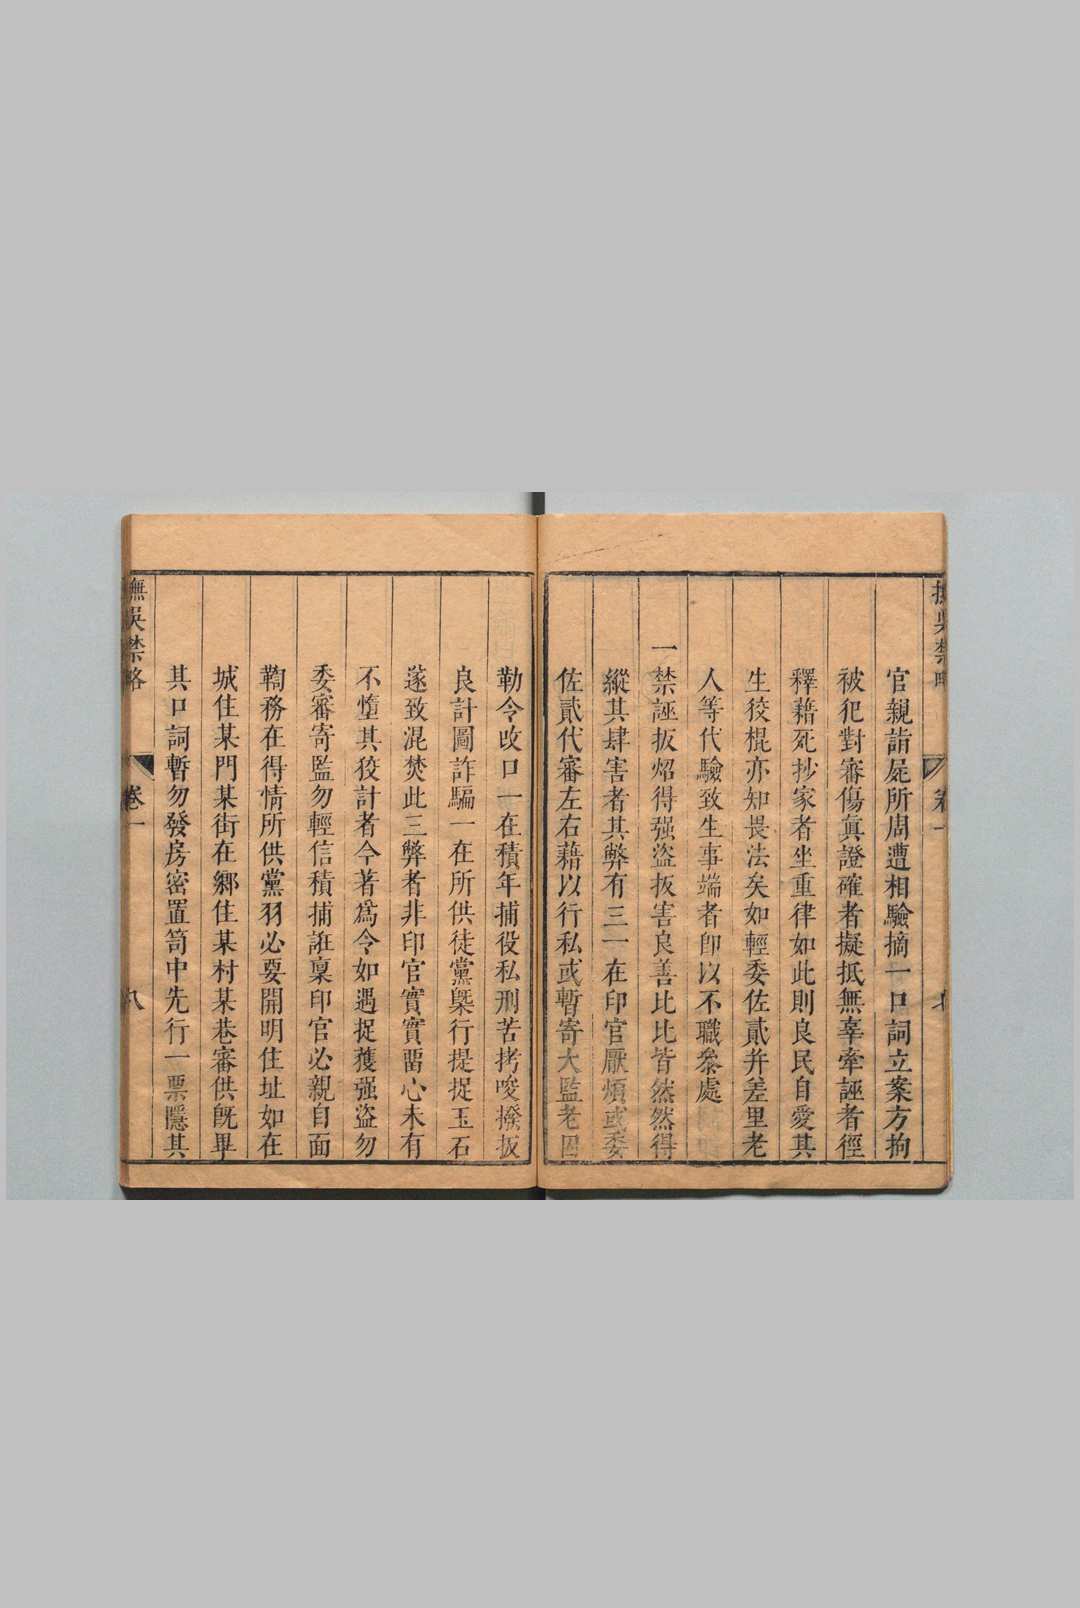 撫吳禁略 卷一
官親詣屍所周遭相驗摘一口詞立案方拘
被犯對審傷眞證確者擬抵無辜牽誣者徑
釋藉死抄家者坐重律如此則良民自愛其
生狡棍亦知畏法矣如輕委佐貳幷差里老
人等代驗致生事端者卽以不職叅處
一禁誣扳炤得强盜扳害良善比比皆然然得
縱其肆害者其弊有三一在印官厭煩或委
佐貳代審左右藉以行私或暫寄大監老囚
勒令改口一在積年捕役私刑苦拷唆撥扳
良計圖詐騙一在所供徒黨槩行提捉玉石
遂致混焚此三弊者非印官實實畱心未有
不墮其狡計者今著爲令如遇捉獲强盜勿
委審寄監勿輕信積捕誑稟印官必親自面
鞫務在得情所供黨羽必要開明住址如在
城住某門某街在鄕住某村某巷審供旣畢
其口詞暫勿發房密置笥中先行一票隱其
撫吳禁略 卷一 八